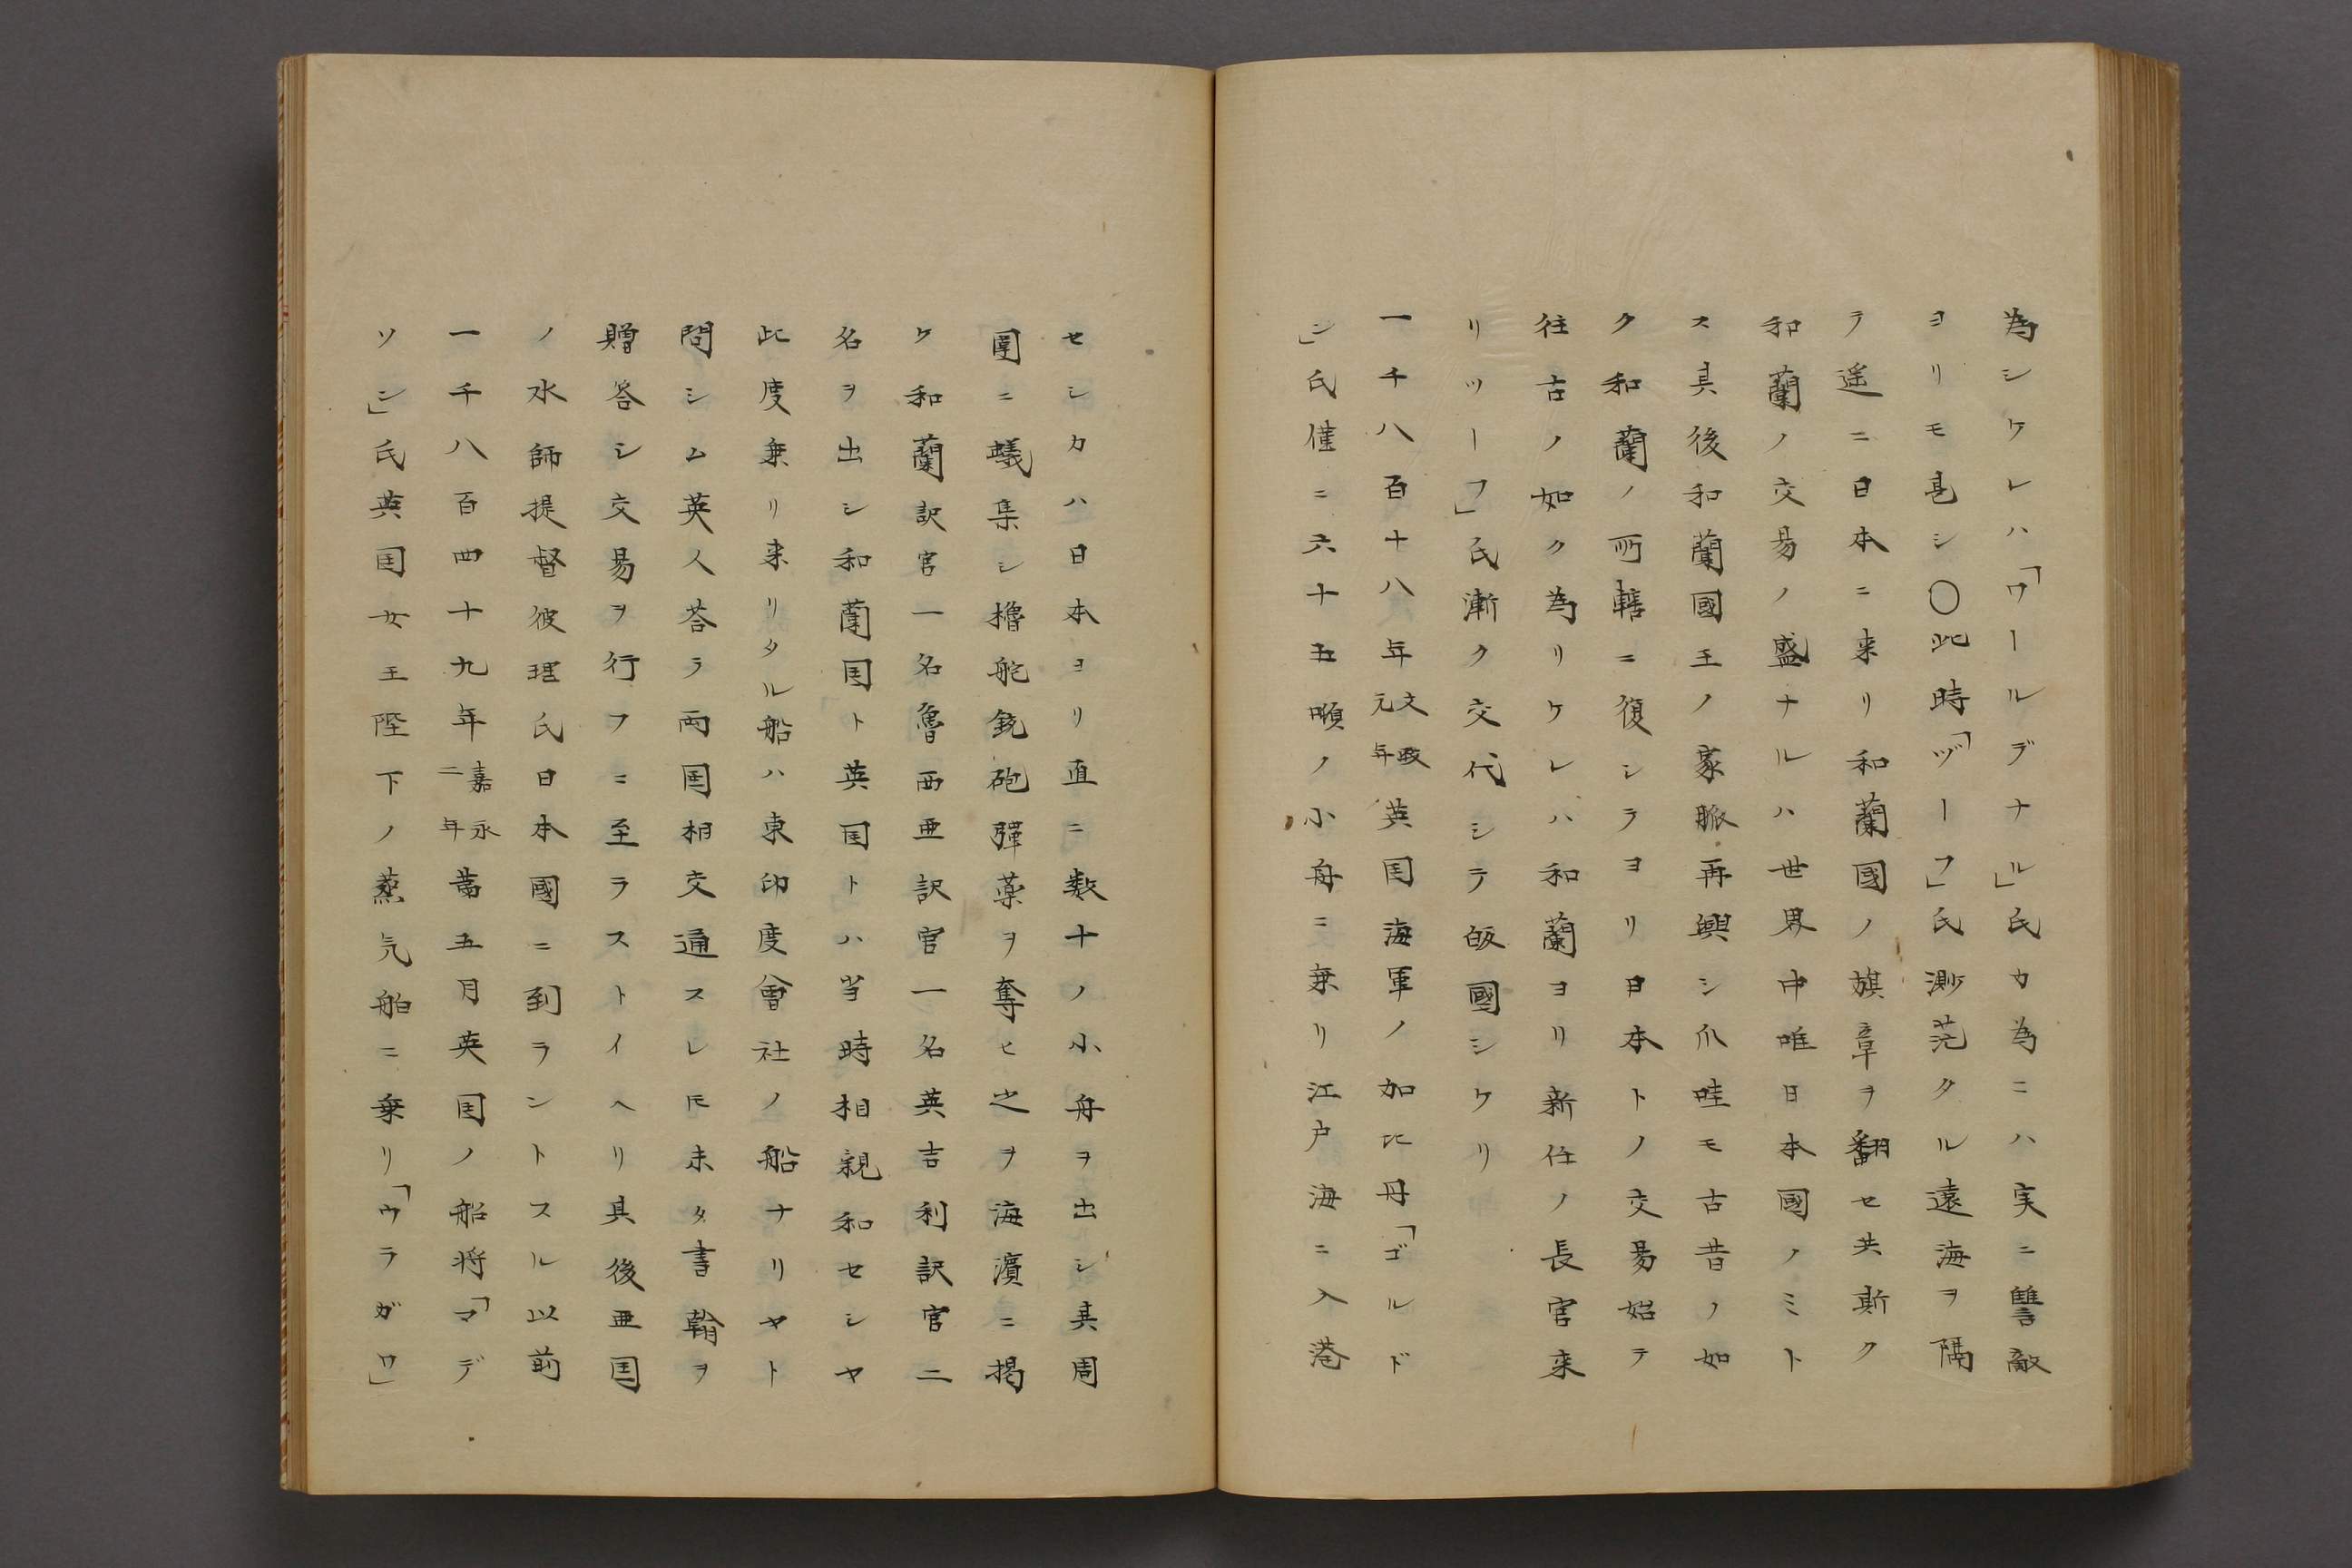 為シケレハ「ワールデナール」氏カ為ニハ実ニ讐敵
ヨリモ甚シ〇此時「ヅーフ」氏渺茫タル遠海ヲ隔
テ遥ニ日本ニ来リ和蘭國ノ旗章ヲ翻セ共斯ク
和蘭ノ交易ノ盛ナルハ世界中唯日本國ノミト
ス其後和蘭國王ノ家脈再興シ爪哇モ古昔ノ如
ク和蘭ノ所轄ニ復シテヨリ日本トノ交易始テ
往古ノ如ク為リケレハ和蘭ヨリ新任ノ長官来
リヅーフ」氏漸ク交代シテ皈國シケリ
一千八百十八年文政元年英国海軍ノ加比丹「ゴルド
ン」氏僅ニ六十五噸ノ小舟ニ乗リ江户海ニ入港
セシカハ日本ヨリ直ニ数十ノ小舟ヲ出シ其周
囲ニ蟻集シ櫓舵銃砲彈薬ヲ奪ヒ之ヲ海濱ニ揭
ケ和蘭訳官一名魯西亜訳官一名英吉利訳官二
名ヲ出シ和蘭国ト英国トハ当時相親和セシヤ
此度乗リ来リタル船ハ東印度會社ノ船ナリヤト
問シム英人荅テ両国相交通スレ𪜈未タ書翰ヲ
贈答シ交易ヲ行フニ至ラストイヘリ其後亜国
ノ水師提督彼理氏日本國ニ到ラントスル以前
一千八百四十九年嘉永二年第五月英国ノ船将「マデ
ソン」氏英国女王陛下ノ蒸気船ニ乗リ「ウラガワ」